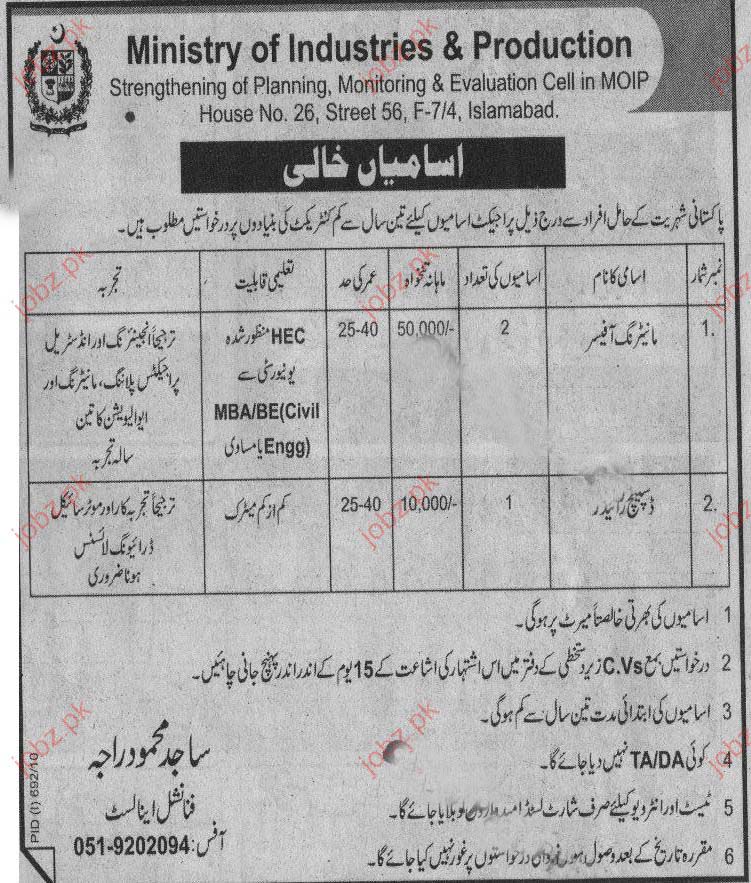 Ministry of Industries & Production
Strengthening of Planning, Monitoring & Evaluation Cell in MOIP
House No. 26, Street 56, F-7/4, Islamabad.
اسامیاں خالی
پاکستانی شہریت کے حامل افراد سے درج ذیل پراجیکٹ اسامیوں کیلئے تین سال سے کم کنٹریکٹ کی بنیادوں پر درخواستیں مطلوب ہیں۔
نمبر شمار اسامی کا نام اسامیوں کی تعداد ماہانہ تنخواہ عمر کی حد تعلیمی قابلیت تجربہ
1. مانیٹرنگ آفیسر 2 50,000/- 25-40 HEC منظور شدہ یونیورسٹی سے MBA/BE(Civil Engg) یا مساوی ترجیحاً انجینئرنگ اور انڈسٹریل پراجیکٹس پلاننگ، مانیٹرنگ اور ایوالیویشن کا تین سالہ تجربہ
2. ڈسپیچ رائیڈر 1 10,000/- 25-40 کم از کم میٹرک ترجیحاً تجربہ کار اور موٹر سائیکل ڈرائیونگ لائسنس ہونا ضروری
1 اسامیوں کی بھرتی خالصتاً میرٹ پر ہوگی۔
2 درخواستیں بمع C.Vs زیر دستخطی کے دفتر میں اس اشتہار کی اشاعت کے 15 یوم کے اندر اندر پہنچ جانی چاہئیں۔
3 اسامیوں کی ابتدائی مدت تین سال سے کم ہوگی۔
4 کوئی TA/DA نہیں دیا جائے گا۔
5 ٹیسٹ اور انٹرویو کیلئے صرف شارٹ لسٹڈ امیدواروں کو بلایا جائے گا۔
6 مقررہ تاریخ کے بعد وصول ہونے والی درخواستوں پر غور نہیں کیا جائے گا۔
ساجد محمود راجہ
فنانشل اینالسٹ
آفس: 051-9202094
PID (I) 692/10
jobz.pk